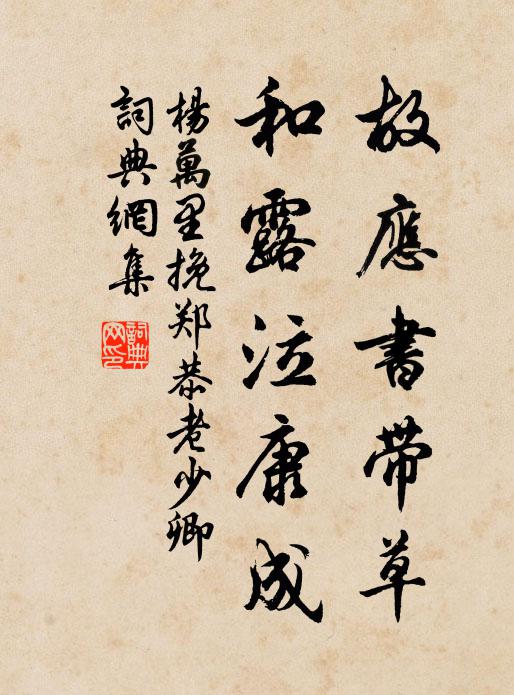 故應書帶草
和露泣康成
楊萬里挽郑恭老少卿
詞典網集
詞典網印